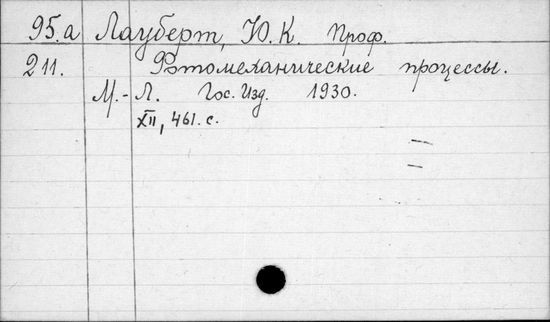 95.а Лауберт, Ю.К. Проф.
211. Фотомеханические процессы.
М.-Л. Гос. Изд. 1930.
XII, 461. с.